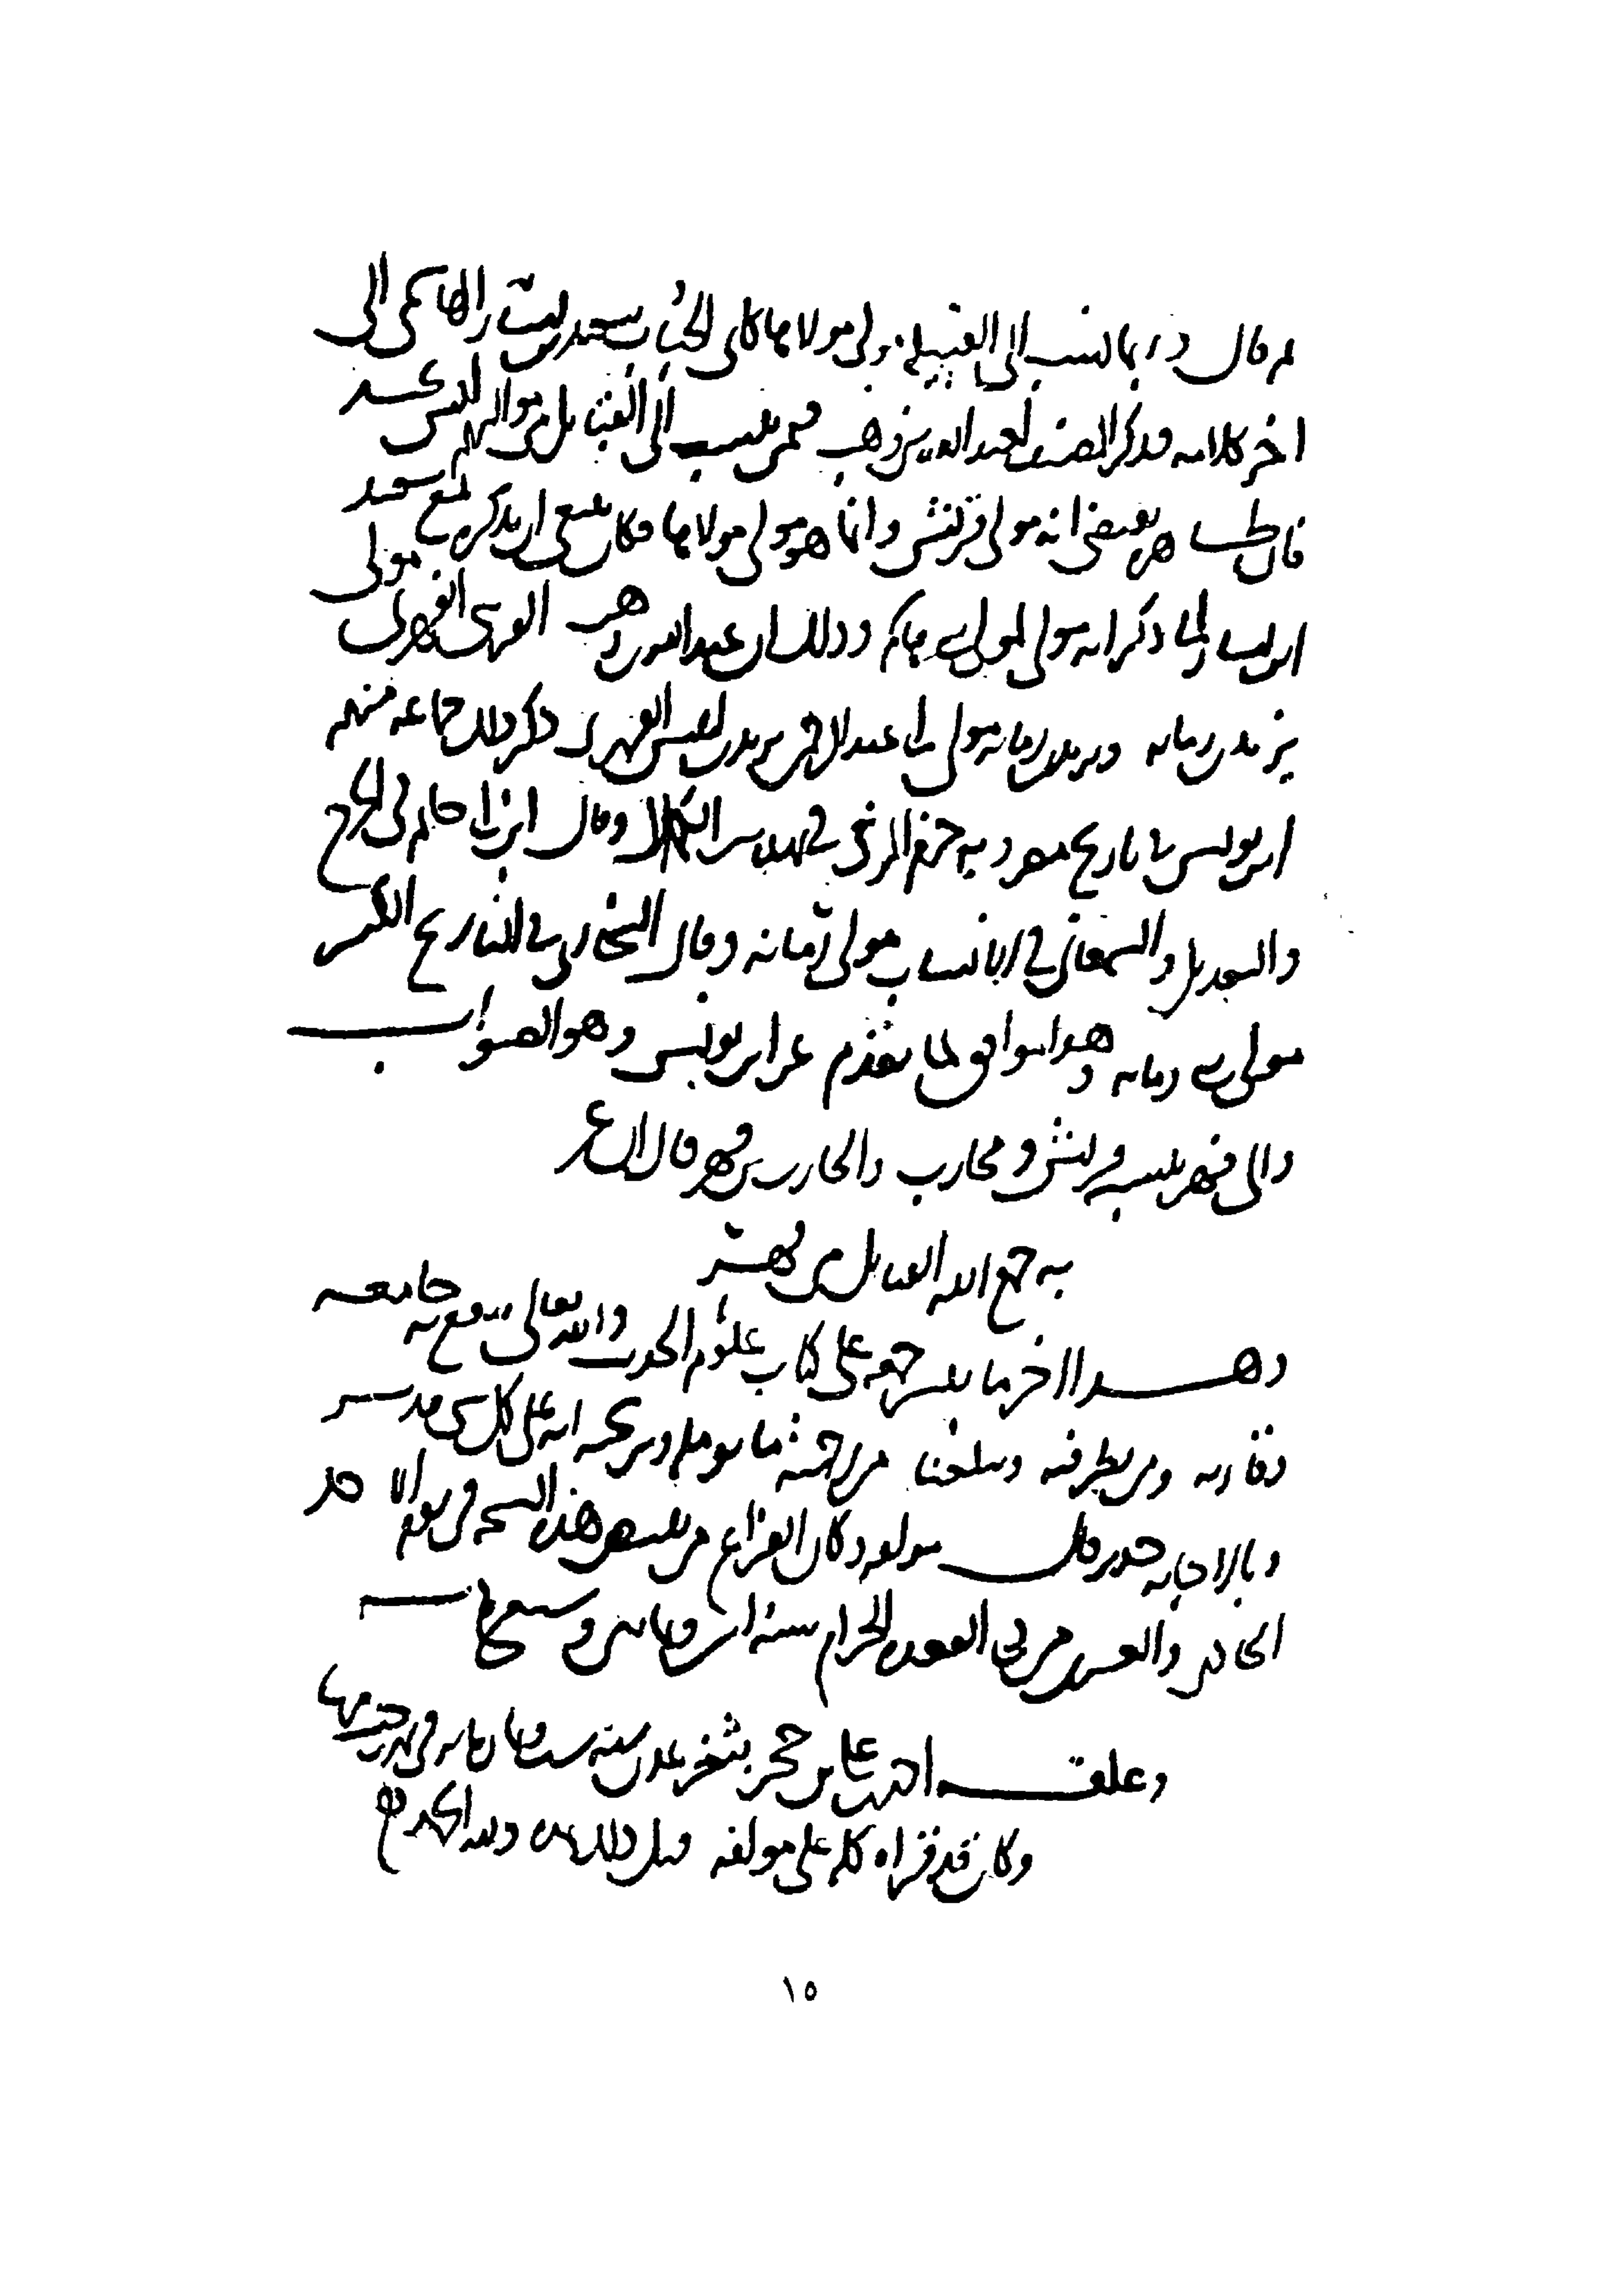 ثم قال وربما نسب إلى القبيلة مولى مولاها كأبي الحباب سعيد بن يسار الهاشمي إلى
اخر كلامه فذكر المصنف لعبد الله بن وهب فيمن ينسب إلى القبائل من مواليهم ليس بجيد
فان ظاهره يقتضي انه مولى قريش وانما هو مولى مولاها فكان ينبغي ان يذكره مع سعيد
ابن يسار الذي ذكر انه مولى لمولى بني هاشم وذلك ان عبد الله بن وهب القرشي الفهري مولى
يزيد بن رمانه ويزيد بن رمانه مولى ابي عبد الرحمن يزيد بن انيس الفهري ذكر ذلك جماعه منهم
ابن يونس في تاريخ مصر وبه جزم المزي في تهذيب الكمال وقال ابن ابي حاتم في الجرح
والتعديل والسمعاني في الانساب مولى رمانه وقال البخاري في التاريخ الكبير
مولى بني رمانه وهذا موافق لما تقدم عن ابن يونس وهو الصواب
والى فهر ينسب قريش ومحارب والحارث بن فهر قال الشاعر
به جمع الله القبائل من فهر
وهذا اخر ما تيسر جمعه على كتاب علوم الحديث والله تعالى ينفع به جامعه
وقاريه ومن نظر فيه ويبلغنا من رحمته ما نؤمله ونرتجيه انه على كل شي قدير
وبالاجابه جدير قال مولفه وكان الفراغ من تبييض هذه النسخه في يوم الاحد
الحادي والعشرين من ذي القعده الحرام سنة اثنين وثمانين وسبع مائه
وعلقه احمد بن علي بن حجر بثغر عدن سنه ست وثمان مائه في
وكان قد قراه كله على مولفه قبل ذلك ولله الحمد
١٥